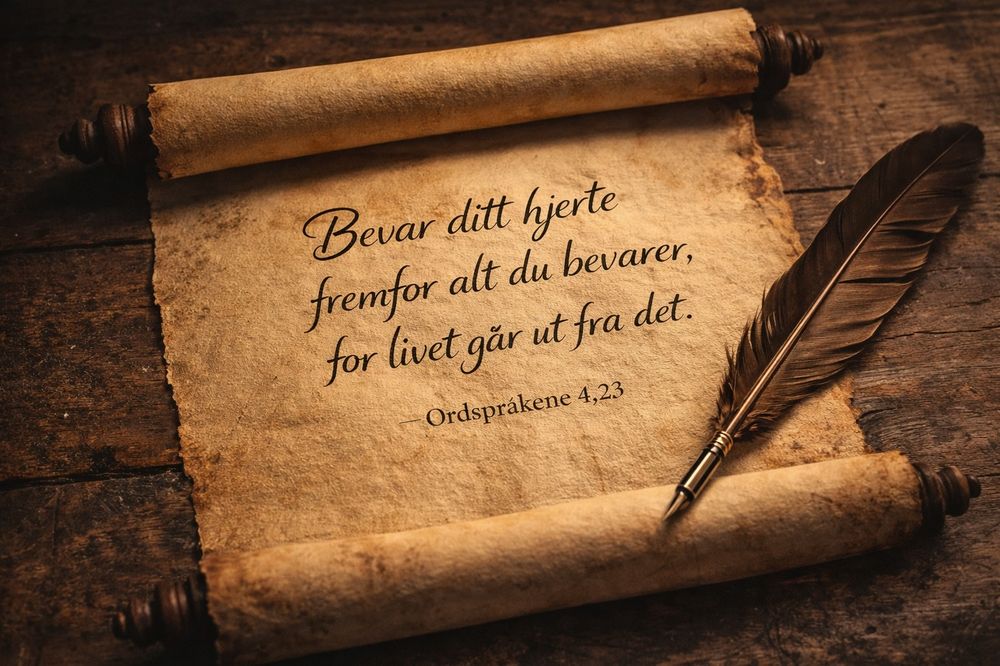 Bevar ditt hjerte
fremfor alt du bevarer,
for livet går ut fra det.
—Ordspråkene 4,23